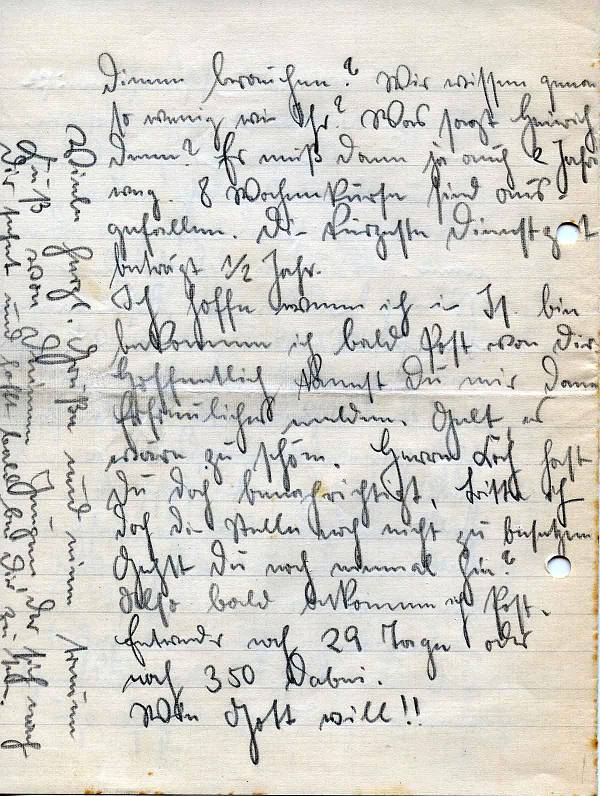 dienen brauchen? Wir wissen genau
so wenig wie Ihr? Was sagt Heinrich
denn? Er muß dann ja auch 2 Jahre
weg. 8 Wochenkurse sind aus-
gefallen. Die kürzeste Dienstzeit
beträgt 1/2 Jahr.
Ich hoffe wenn ich in J. bin
bekomme ich bald Post von Dir
Hoffentlich kannst Du mir dann
Erfreuliches melden. Gelt, es
wäre zu schön. Herrn Koch hast
Du doch benachrichtigt, bitte ich
doch die Stelle noch nicht zu besetzen.
Gehst Du noch einmal hin?
Also bald bekomme ich Post.
Entweder noch 29 Tage oder
noch 350 dabei.
Wie Gott will!!
Viele herzl. Grüße und einen treuen
Kuß von Deinem Jungen der sich nach
Dir sehnt und hofft bald bei Dir zu sein.